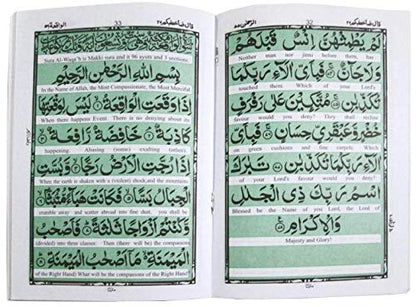 قال فما خطبكم ٢٧
32
الرحمن ٥٥
لَمْ يَطْمِثْهُنَّ اِنْسٌ قَبْلَهُمْ
Neither man nor jinns before them, hav
وَلَا جَآنٌّ ۚ فَبِاَيِّ اٰلَآءِ رَبِّكُمَا
touched them Which of your Lord's
تُكَذِّبٰنِ ۚ مُتَّكِـِٕيْنَ عَلٰى رَفْرَفٍ
favour would you deny? They shall recline
خُضْرٍ وَّعَبْقَرِيٍّ حِسَانٍ ۚ فَبِاَيِّ
on green cushions and fine carpets, Which
اٰلَآءِ رَبِّكُمَا تُكَذِّبٰنِ تَبٰرَكَ
of your Lord's favour would you deny?
اسْمُ رَبِّكَ ذِي الْجَلٰلِ
Blessed be the Name of you Lord, the Lord of
وَالْاِكْرَامِ
Majesty and Glory!
قال فما خطبكم ٢٧
33
الواقعة ٥٦
Sura Al-Waqa'h is Makki sura and is 96 ayats and 3 sections.
بِسْمِ اللّٰهِ الرَّحْمٰنِ الرَّحِيْمِ
In the Name of Allah, the Most Compassionate, the Most Merciful
اِذَا وَقَعَتِ الْوَاقِعَةُ لَيْسَ لِوَقْعَتِهَا
When there happens Event There is no denying about its
كَاذِبَةٌ خَافِضَةٌ رَّافِعَةٌ
happening Abasing (some) exalting (other).
اِذَا رُجَّتِ الْاَرْضُ رَجًّا وَّبُسَّتِ
When the earth is shaken with a (violent) shock, and the mountains
الْجِبَالُ بَسًّا فَكَانَتْ هَبَآءً مُّنْۢبَثًّا
crumble away and scatter abroad into fine dust, you shall be
وَّكُنْتُمْ اَزْوَاجًا ثَلٰثَةً فَاَصْحٰبُ
(divided) into three classes. Then (there will be) the companions
الْمَيْمَنَةِ مَآ اَصْحٰبُ الْمَيْمَنَةِ
(of the Right Hand) What will be the companions of the Right Hand)